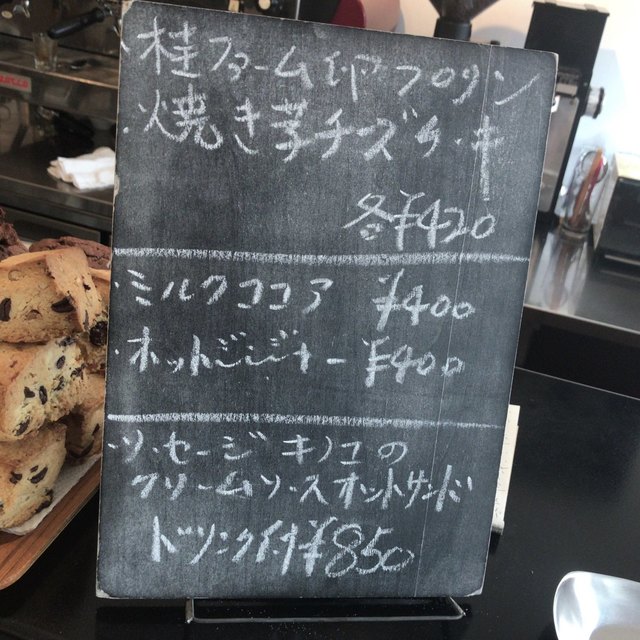 ・桂ファーム印プリン
・焼き芋チーズケーキ
各¥420
・ミルクココア ¥400
・ホットジンジャー ¥400
・ソーセージキノコの
クリームソースホットサンド
ドリンク付¥850